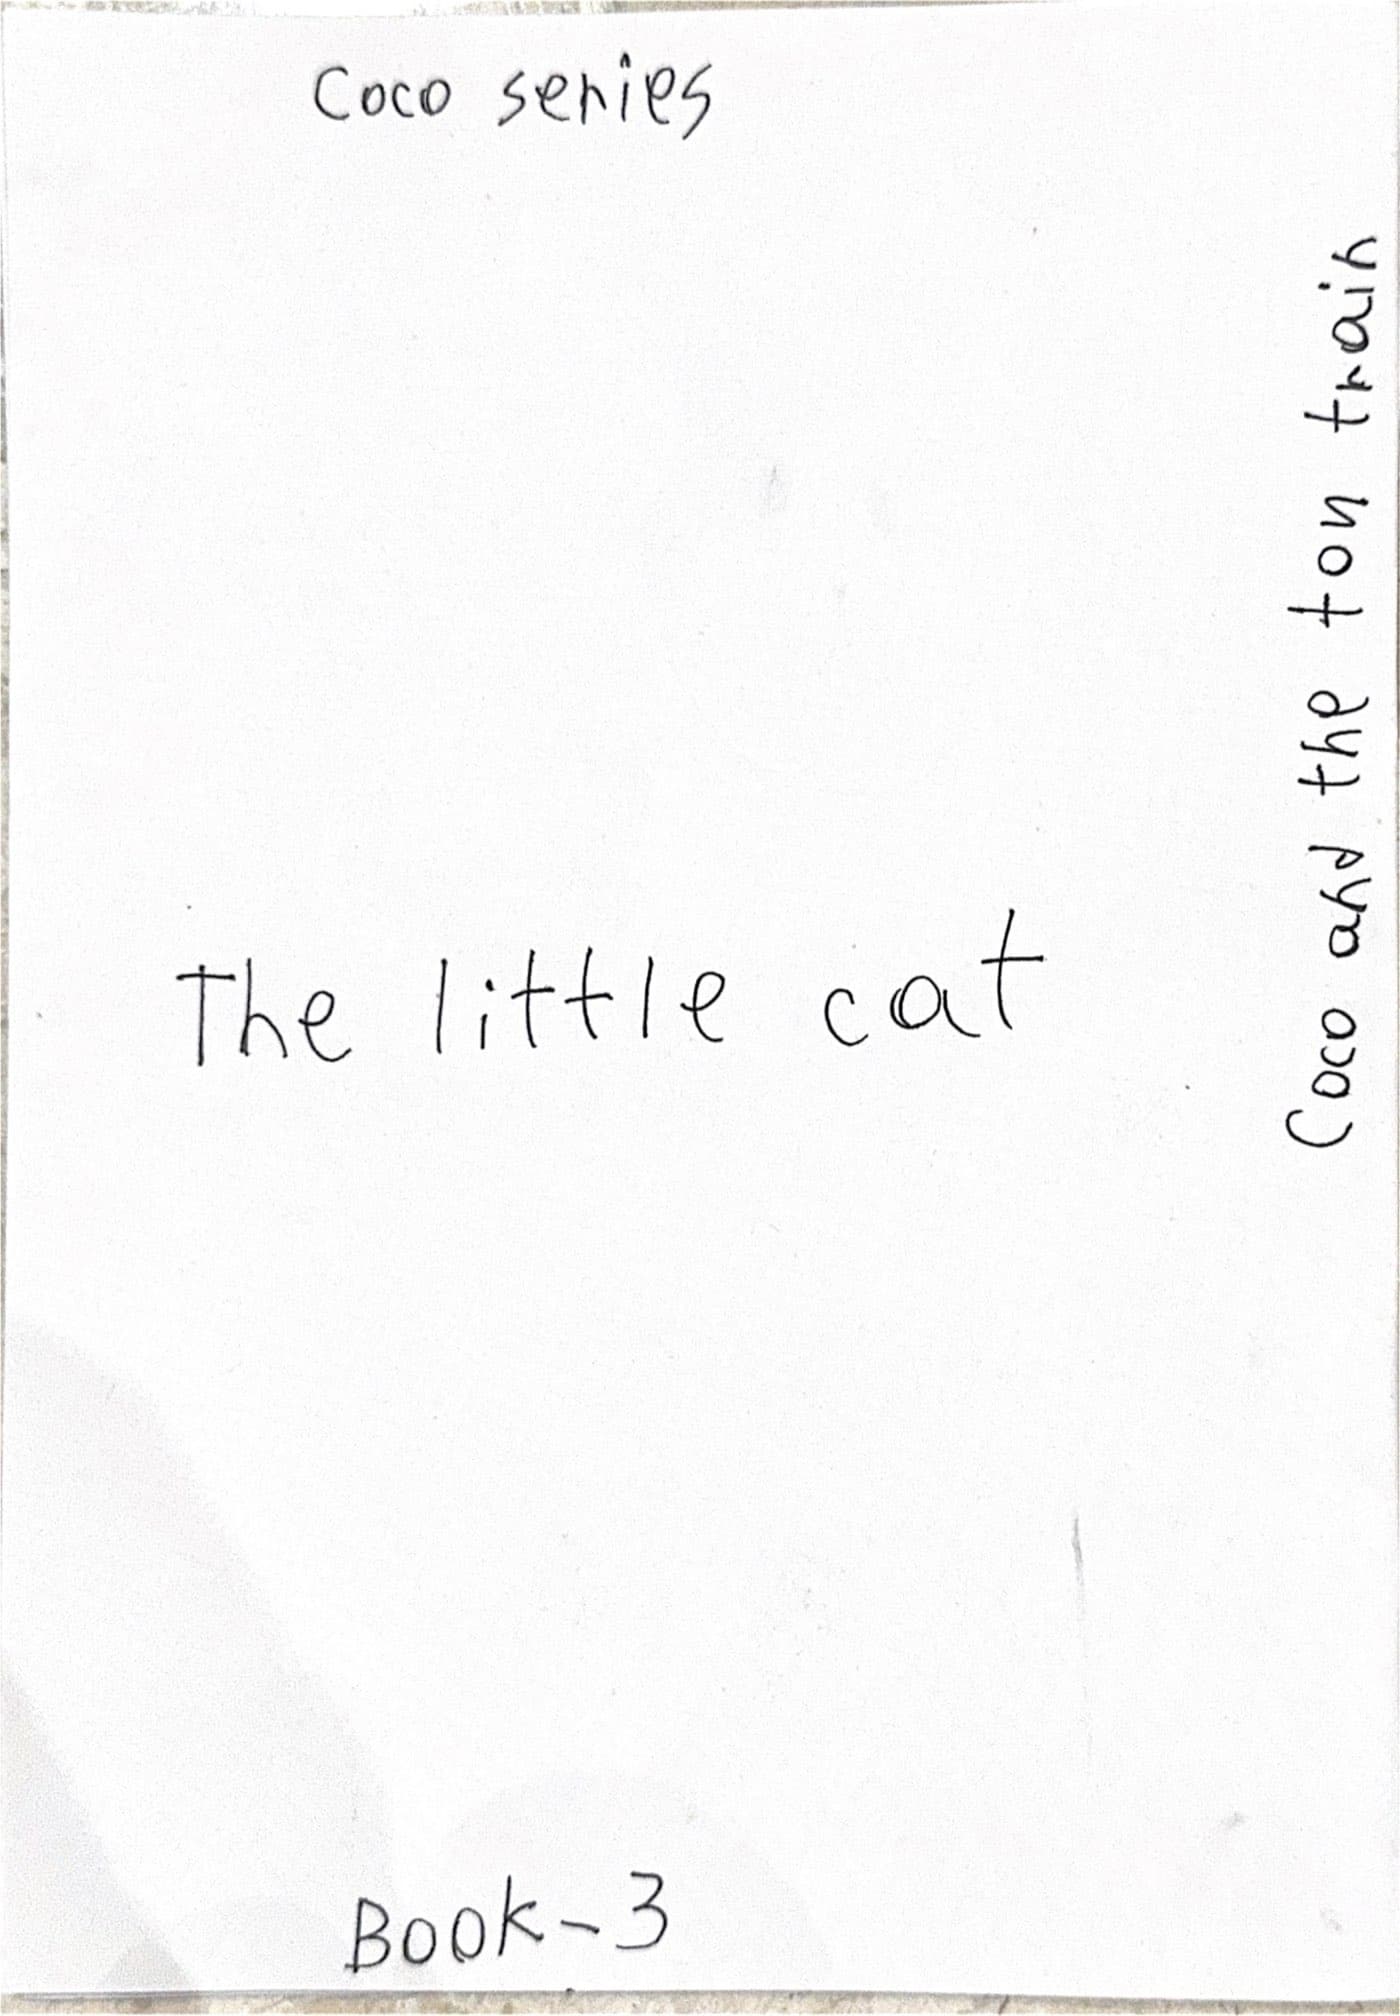 Coco series
Coco and the ton train
The little cat
Book-3